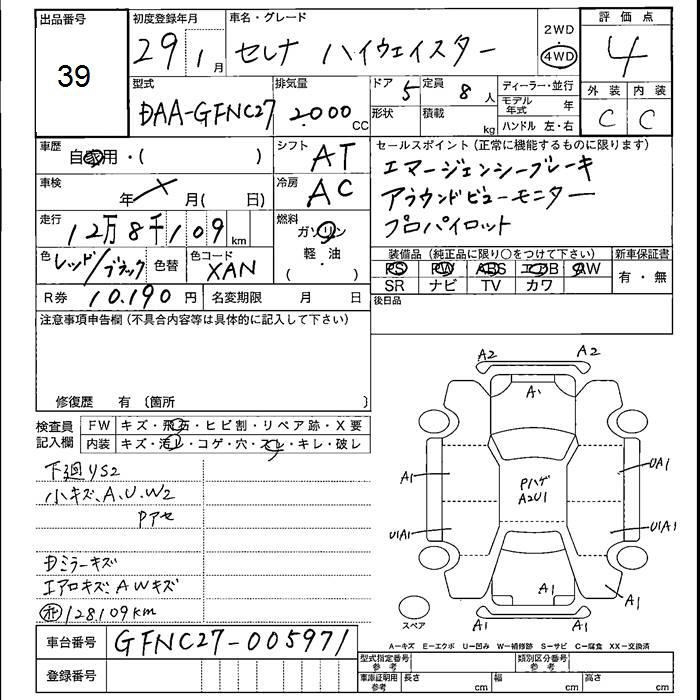 出品番号 初度登録年月 車名・グレード 2WD 評価点
39 29 1月 セレナ ハイウェイスター 4WD 4
型式 排気量 ドア 定員 ディーラー・並行 外装 内装
DAA-GFNC27 2000CC 5 8人 モデル年式 年 C C
形状 積載 kg ハンドル 左・右
車歴 自家用・( ) シフト AT セールスポイント(正常に機能するものに限ります)
エマージェンシーブレーキ
車検 年 月( 日) 冷房 AC アラウンドビューモニター
走行 12万8千109km 燃料 ガソリン プロパイロット
軽・油
( )
色 レッド/ブラック 色替 色コード XAN 装備品(純正品に限り○をつけて下さい) 新車保証書
PS PW ABS エアB AW 有・無
SR ナビ TV カワ
R券 10.190円 名変期限 月 日 後日品
注意事項申告欄(不具合内容等は具体的に記入して下さい)
修復歴 有 〔箇所 〕
検査員記入欄 FW キズ・飛石・ヒビ割・リペア跡・X要
内装 キズ・汚レ・コゲ・穴・スレ・キレ・破レ
下廻りS2
小キズ、A、U、W2
Pアセ
Dミラーキズ
エアロキズ、AWキズ
128.109km
A2 A2
A1
A1 UA1
Pハゲ
A2U1
U1A1 U1A1
A1 A1 A1
スペア A1 A1
A-キズ E-エクボ U-凹み W-補修跡 S-サビ C-腐食 XX-交換済
車台番号 GFNC27-005971
型式指定番号 参考 類別区分番号 参考
登録番号
車庫証明用 参考 長さ cm 幅 cm 高さ cm